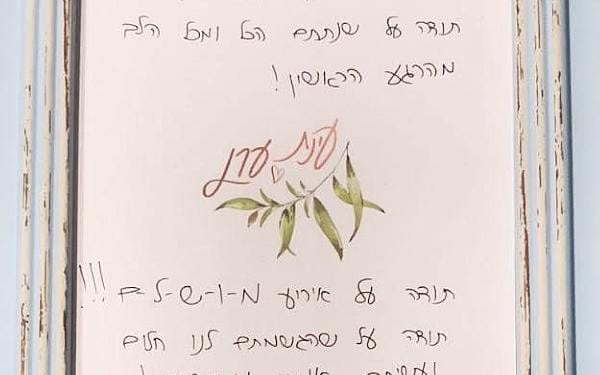 תודה על שנתתם הכל ומכל הלב
מהרגע הראשון!
עינת ערן
תודה על אירוע מ-ו-ש-ל-ם !!!
תודה על שהגשמתם לנו חלום